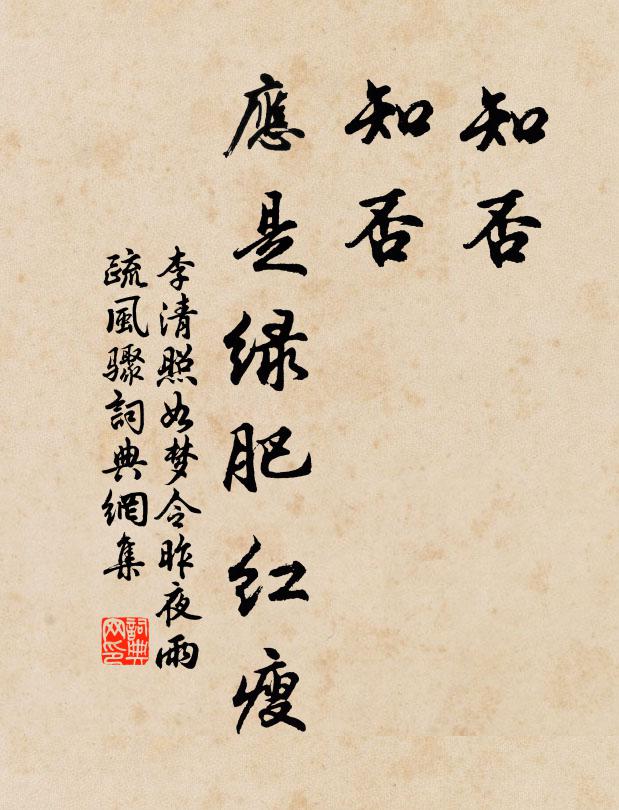 知否
知否
應是緑肥红瘦
李清照如梦令昨夜雨
疏風驟詞典網集
詞典
网印